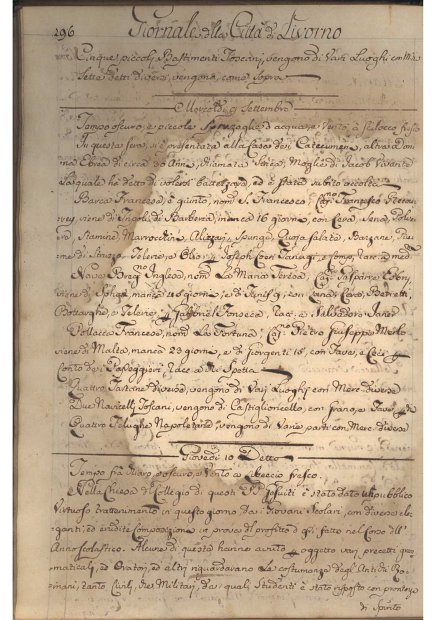 296 Giornale della Città di Livorno
Cinque piccoli Bastimenti Toscani, vengono di Varj Luoghi con
Sette detti diversi, vengono, come sopra
Mercoledì 9 Settembre
Tempo oscuro, e piccole Spruzzaglie d'acqua e Vento, à Scilocco fresco
In questa sera, si è presentata alla Casa dei Catecumeni, altra
Ebrea di circa 20 Anni, chiamata Moglie di Jacob
la quale hà detto di volersi battezzare, ed è stata subito accolta
Barca Francese è giunto, nom. S. Francesco, Francesco
viene di Tripoli di Barberia, manca 16 giorni, con Cera, Sena,
Stamine, Marrocchini, Spunge, Ossa salate, Barzane,
di Struzzo, Telerie, e Olio Joseph Coen Tanugi,
Nave Inglese, nom. La Maria Teresa, Gasparre
viene di manca giorni, e di Tunis 9, con Lana, Cera, Berretti,
Bottarghe, e Telerie Gabbriel Fonseca, e Salvadore
Pollacca Francese, nom. La Fortuna Pietro Giuseppe
viene di Malta, manca 23 giorni, e di Giorgenti 16, con Fave, e
Conto dei Passeggieri,
Quattro Tartane diverse, vengono di Varj Luoghi con Merc. diverse
Due Navicelli Toscani, vengono di Castiglioncello, con grano, e Fave
Quattro Felughe Napoletane, vengono di Varie parti con Merc. diverse
Giovedì 10 Detto
Tempo frà chiaro, ed oscuro, e Vento à Libeccio fresco.
Nella Chiesa del Collegio di questi PP. Gesuiti è stato dato un pubblico
Virtuoso trattenimento in questo giorno dai Giovani Scolari, con diverse ele-
ganti, ed erudite Composizioni in prova del profitto da essi fatto nel Corso dell'
Anno scolastico. Alcune di queste hanno avuto p oggetto varj precetti gram-
maticali, ed Oratorj, ed altri riguardavano la costumanze degl'Antichi Ro-
mani, tanto Civili, che Militari, dai quali Studenti è stato risposto con prontezza
di Spirito